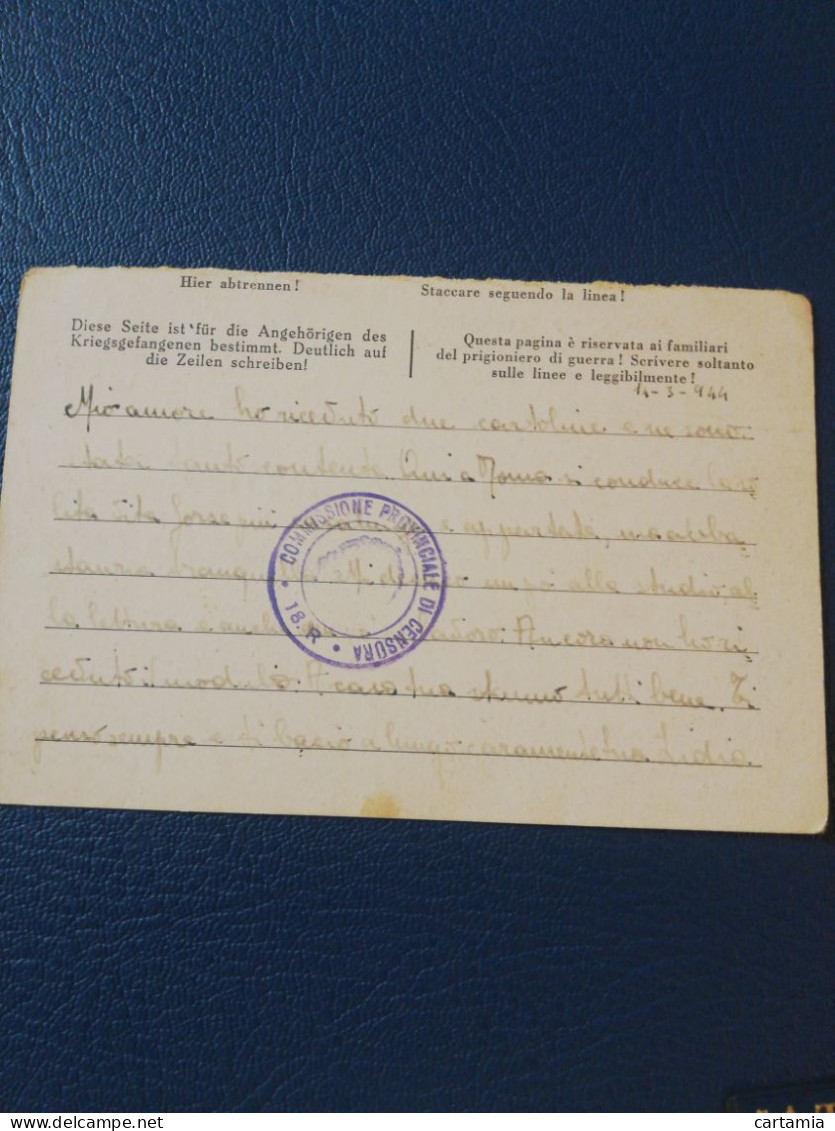 Hier abtrennen!
Staccare seguendo la linea!
Diese Seite ist für die Angehörigen des
Kriegsgefangenen bestimmt. Deutlich auf
die Zeilen schreiben!
Questa pagina è riservata ai familiari
del prigioniero di guerra! Scrivere soltanto
sulle linee e leggibilmente!
14-3-944
Mio amore ho ricevuto due cartoline e ne sono
stata tanto contenta. Qui a Roma si conduce la so
lita vita forse più e appartata, ma abba
stanza tranquilla. Mi dedico un po' allo studio, al
la lettura e anche lavoro. Ancora non ho ri
cevuto i moduli. A casa tua stanno tutti bene. Ti
penso sempre e ti bacio a lungo caramente tua Lidia
COMMISSIONE PROVINCIALE DI CENSURA
18. R
cartamia